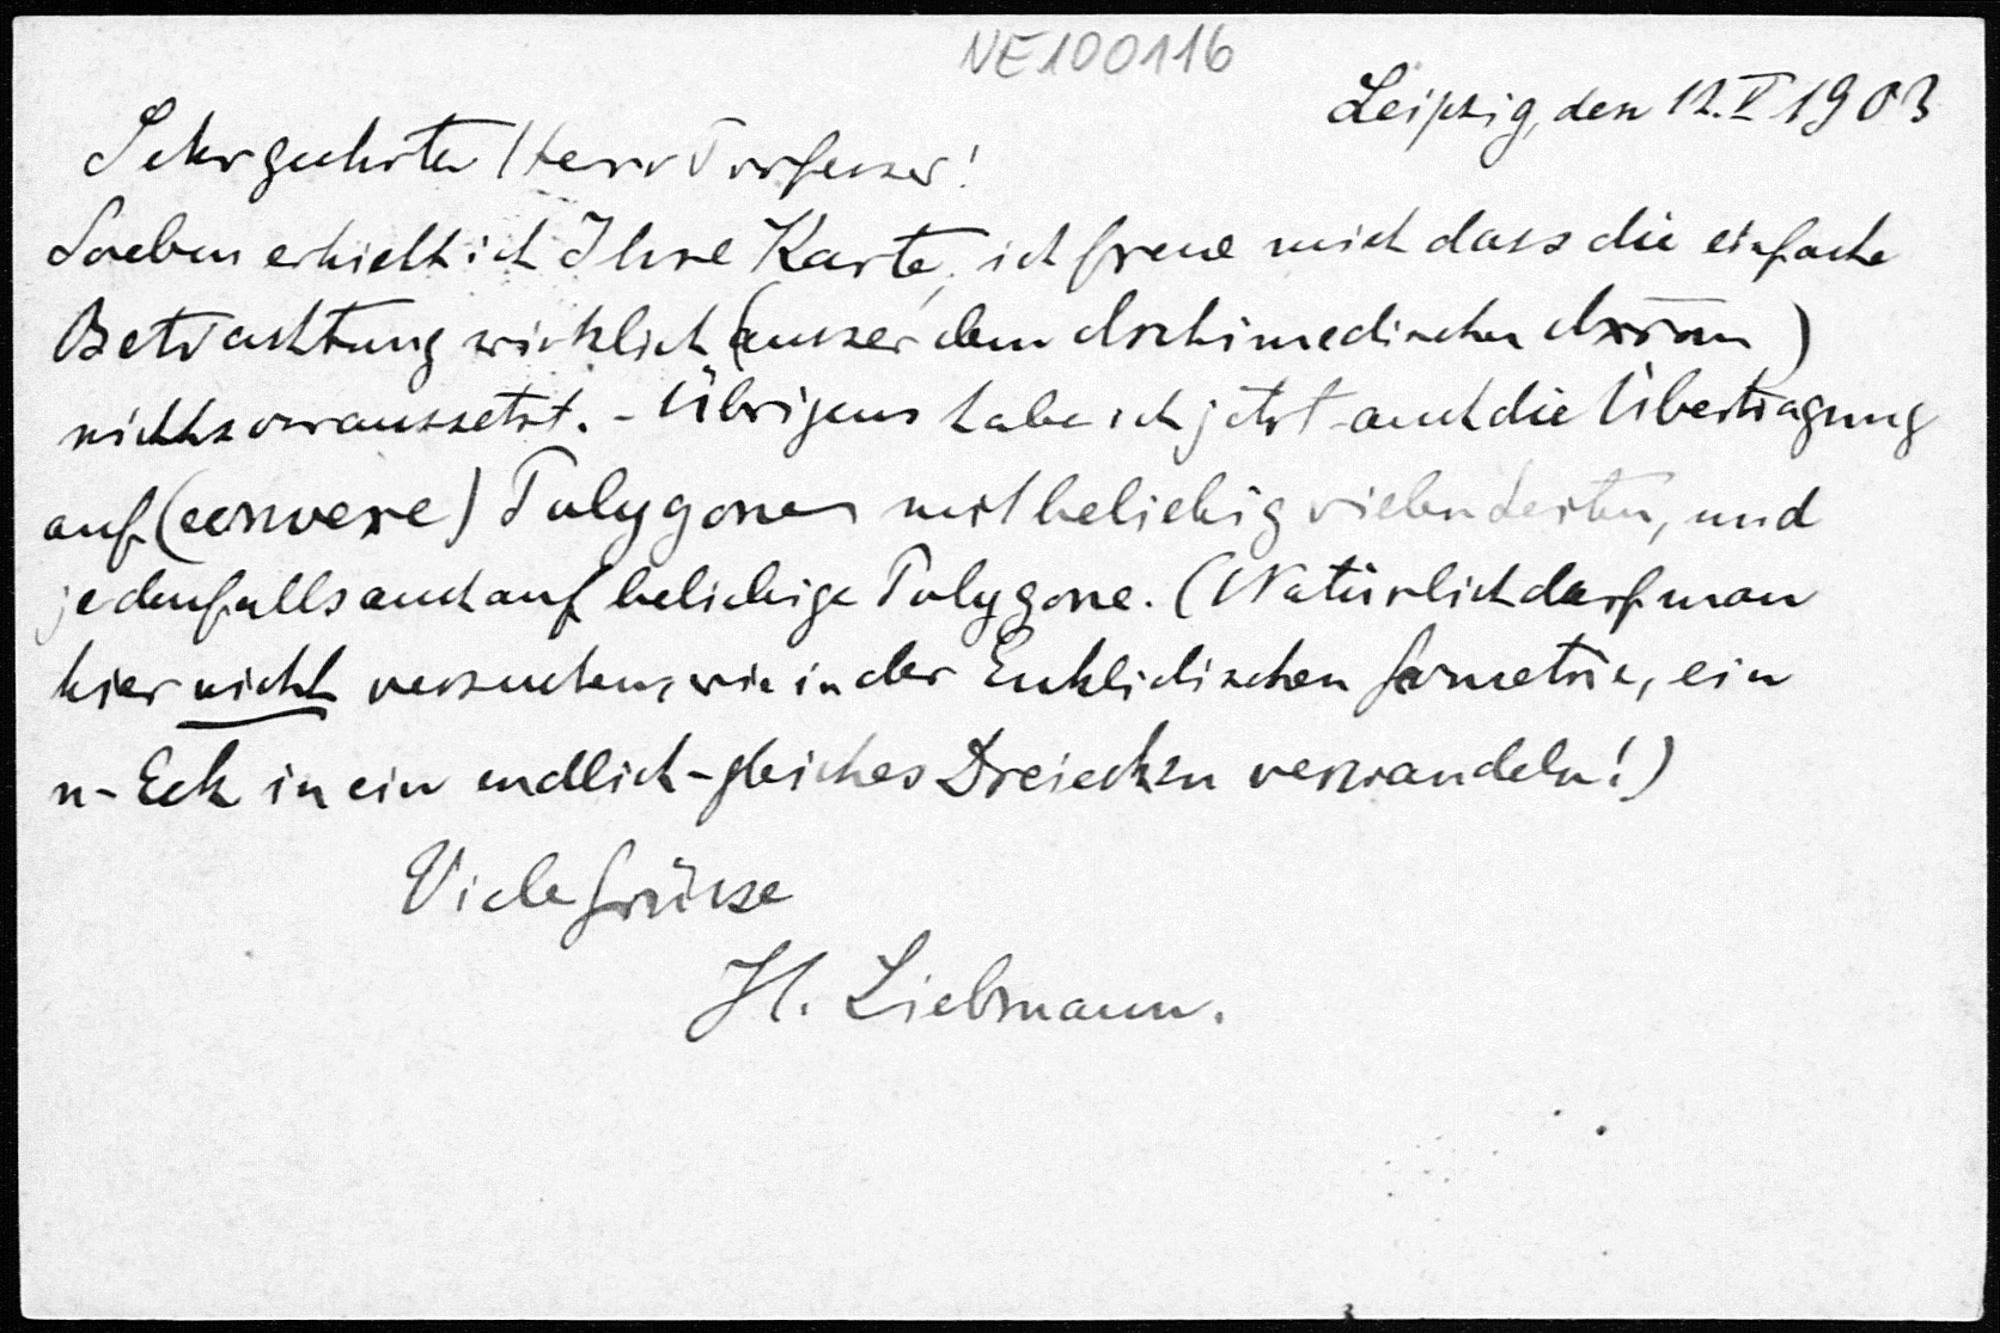 NE100116
Leipzig, den 12. V 1903
Sehr geehrter Herr Professor!
Soeben erhielt ich Ihre Karte, ich freue mich dass die einfache
Betrachtung wirklich (ausser dem Archimedischen Axiom)
nichts voraussetzt. - Übrigens habe ich jetzt auch die Übertragung
auf (convexe) Polygone mit beliebig vielen Seiten, und
jedenfalls auch auf beliebige Polygone. (Natürlich darf man
hier nicht versuchen, wie in der Euklidischen Geometrie, ein
n-Eck in ein endlich-gleiches Dreieck zu verwandeln!)
Viele Grüsse
H. Liebmann.